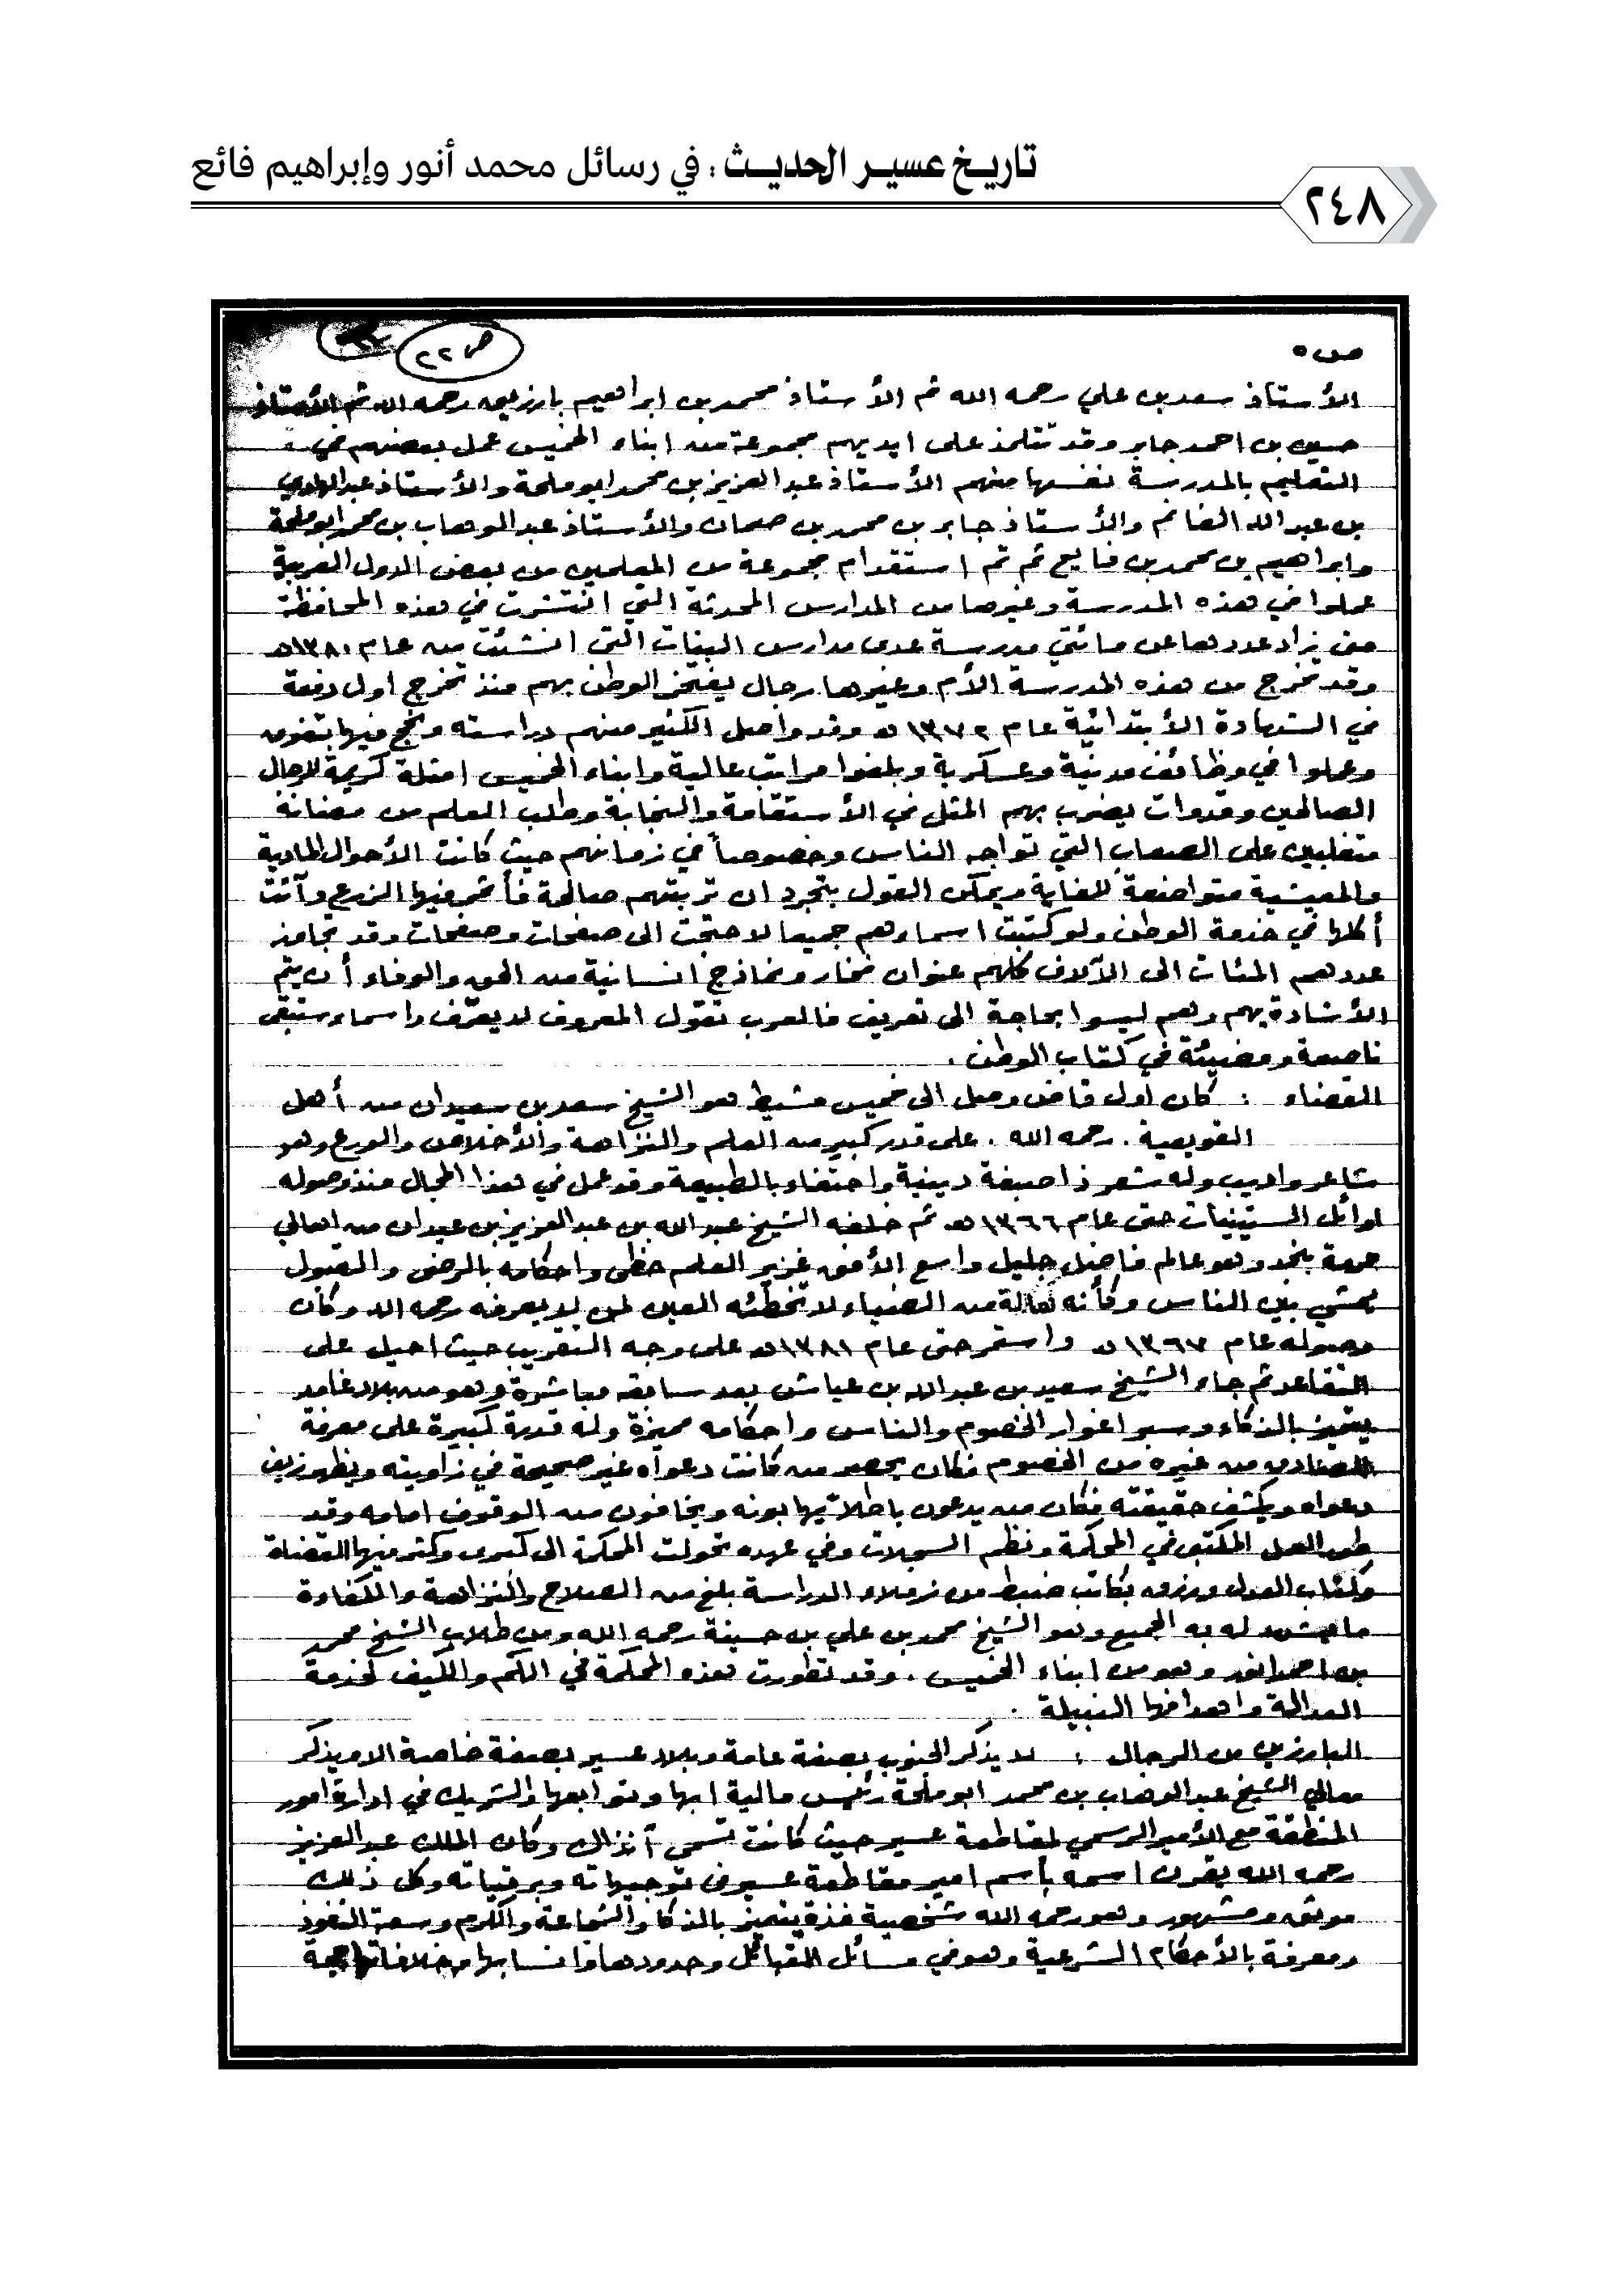 تاريخ عسير الحديث : في رسائل محمد أنور وإبراهيم فائع
٢٤٨
ص ٥
ص ٢٢
الأستاذ سعد بن علي رحمه الله ثم الأستاذ محمد بن ابراهيم بارزيق رحمه الله ثم الأستاذ
حسين بن احمد جابر وقد تتلمذ على ايديهم مجموعة من ابناء الخميس عمل بعضهم في
التعليم بالمدرسة نفسها منهم الأستاذ عبد العزيز بن محمد ابو ملحة والأستاذ عبد الهادي
بن عبد الله الغانم والأستاذ جابر بن محمد بن صمان والأستاذ عبد الوهاب بن محمد ابو ملحة
وابراهيم بن محمد بن فايع ثم تم استقدام مجموعة من المعلمين من بعض الدول العربية
عملوا في هذه المدرسة وغيرها من المدارس المحدثة التي انتشرت في هذه المحافظة
حتى زاد عددها عن مائتي مدرسة عدى مدارس البنات التي انشئت من عام ١٣٨٠هـ
وقد تخرج من هذه المدرسة الأم وغيرها رجال يفتخر الوطن بهم منذ تخرج اول دفعة
في الشهادة الأبتدائية عام ١٣٧٢هـ وقد واصل الكثير منهم دراسته ونجح فيها بتفوق
وعملوا في وظائف مدنية وعسكرية وبلغوا مراتب عالية وابناء الخميس امثلة كريمة للرجال
الصالحين وقدوات يضرب بهم المثل في الأستقامة والنجابة وطلب العلم من مضانة
متغلبين على الصعاب التي تواجه الناس وخصوصاً في زمانهم حيث كانت الأحوال المادية
والمعيشية متواضعة للغاية ويمكن القول بتجرد ان تربتهم صالحة فأثمر فيها الزرع وآتت
أكلها في خدمة الوطن ولو كتبت اسماءهم جميعا لاحتجت الى صفحات وصفحات وقد تجاوز
عددهم المئات الى الآلاف كلهم عنوان فخار ونماذج انسانية من الحق والوفاء أن يتم
الأشادة بهم وهم ليسوا بحاجة الى تعريف فالعرب تقول المعروف لا يعرّف واسماء ستبقى
ناصعة ومضيئة في كتاب الوطن .
القضاء : كان اول قاض وصل الى خميس مشيط هو الشيخ سعد بن سعيدان من أهل
القويعية . رحمه الله . على قدر كبير من العلم والنزاهة والأخلاق والورع وهو
شاعر واديب وله شعر ذا صبغة دينية واحتفاء بالطبيعة وقد عمل في هذا المجال منذ وصوله
اوائل الستينيات حتى عام ١٣٦٦هـ ثم خلفه الشيخ عبد الله بن عبد العزيز بن عبدان من اهالي
حرمة بنجد وهو عالم فاضل جليل واسع الأفق غزير العلم حظى واحكامه بالرضى والقبول
يمشي بين الناس وكأنه هالة من الضياء لا تخطئه العين لمن لا يعرفه رحمه الله وكان
وصوله عام ١٣٦٧هـ واستمر حتى عام ١٣٨١هـ على وجه التقريب حيث احيل على
التقاعد ثم جاء الشيخ سعيد بن عبد الله بن عياش بعد سابقه مباشرة وهو من بلاد غامد
يتميز بالذكاء وسبر اغوار الخصوم والناس واحكامه مميزة وله قدرة كبيرة على معرفة
الصادق من غيره من الخصوم فكان يحصر من كانت دعواه غير صحيحة في زاويته ويظهر زيف
دعواه ويكشف حقيقته فكان من يدعون باطلاً يهابونه ويخافون من الوقوف امامه وقد
طور العمل المكتبي في المحكمة ونظم السجلات وفي عهده تحولت المحكمة الى كبرى وكثر فيها القضاة
وكتاب العدل ورزق بكاتب ضبط من زملاء الدراسة بلغ من الصلاح والنزاهة والكفاءة
ما يشهد له به الجميع وهو الشيخ محمد بن علي بن حسينة رحمه الله ومن طلاب الشيخ محمد
بن احمد انور وهو من ابناء الخميس . وقد تطورت هذه المحكمة في الكم والكيف لخدمة
العدالة واهدافها النبيلة .
البارزين من الرجال : لا يذكر الجنوب بصفة عامة وبلاد عسير بصفة خاصة الا ويذكر
معالي الشيخ عبد الوهاب بن محمد ابو ملحة رئيس مالية ابها وتوابعها والشريك في ادارة امور
المنطقة مع الأمير الرسمي لمقاطعة عسير حيث كانت تسمى آنذاك وكان الملك عبد العزيز
رحمه الله يقرن اسمه بأسم امير مقاطعة عسير في توجيهاته وبرقياته وكل ذلك
موثق ومشهور وهو رحمه الله شخصية فذة يتميز بالذكاء والشجاعة والكرم وسعة النفوذ
ومعرفة بالأحكام الشرعية وهو في مسائل القبائل وحدودها وانسابها وخلافاتها حجة